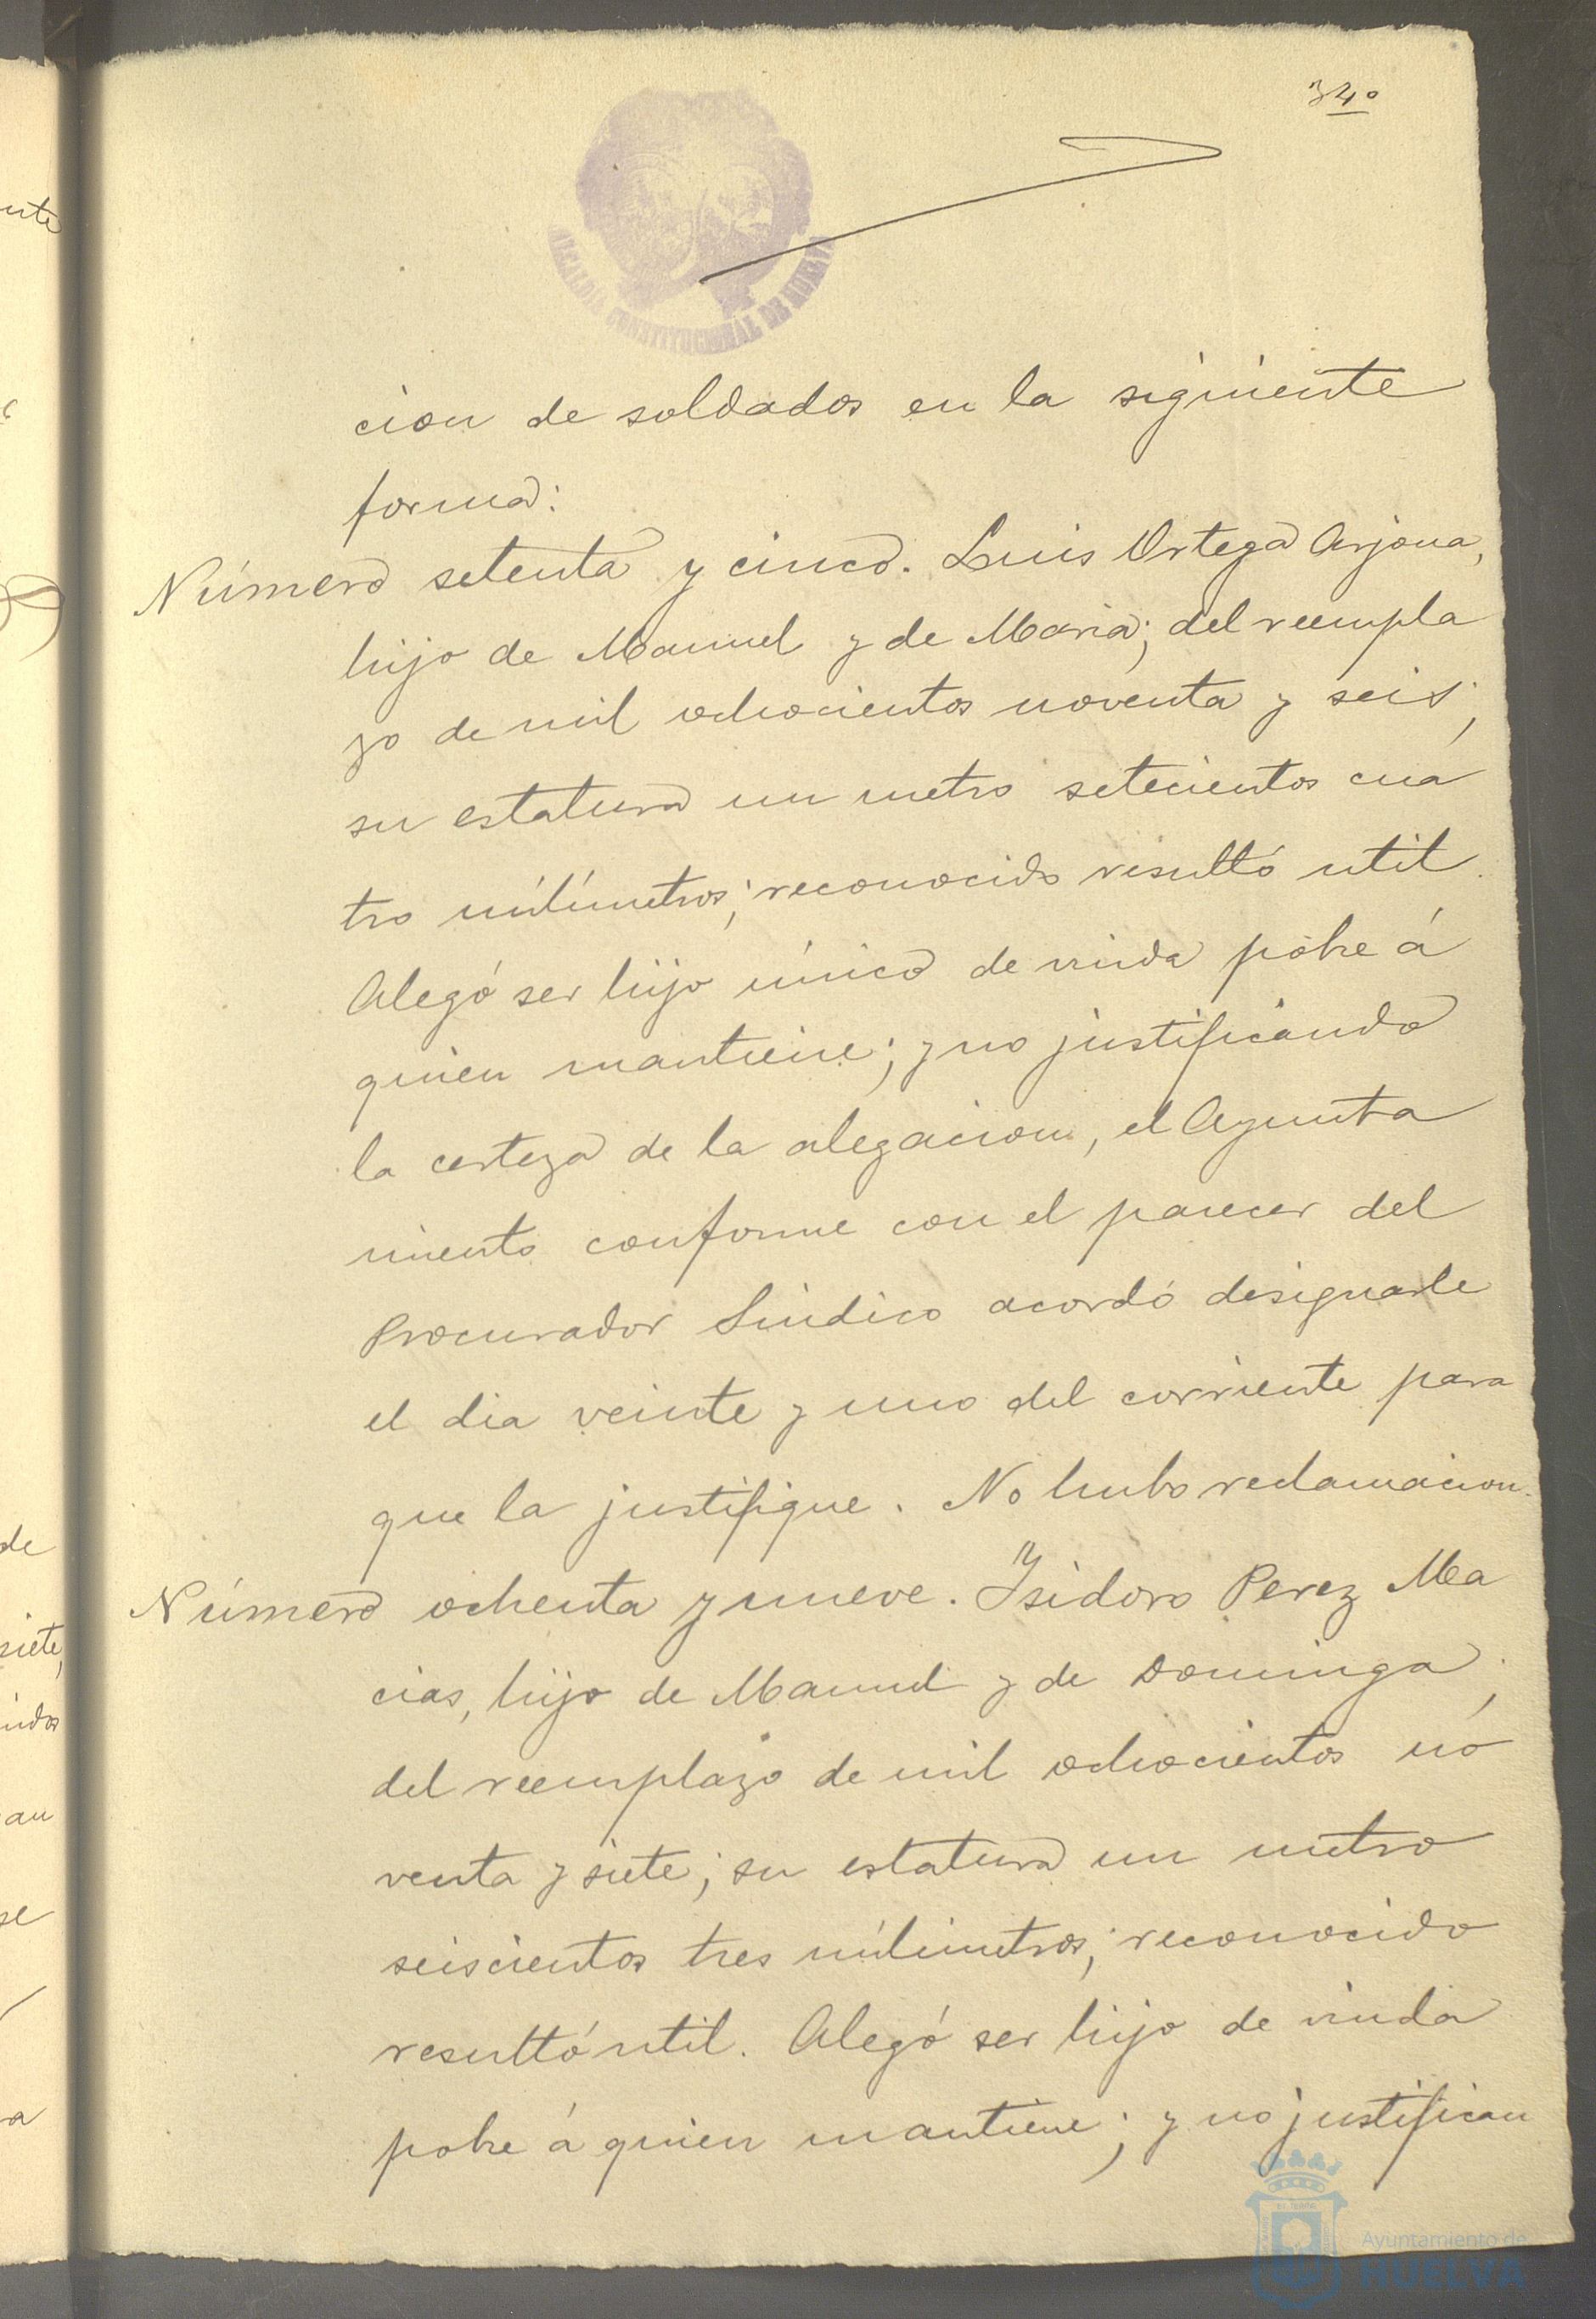 34º
ALCALDIA CONSTITUCIONAL DE HUELVA
cion de soldados en la siguiente
forma:
Número setenta y cinco. Luis Ortega Arjona,
hijo de Manuel y de Maria; del reempla
zo de mil ochocientos noventa y seis;
su estatura un metro setecientos cua
tro milímetros; reconocido resultó util.
Alegó ser hijo único de viuda pobre á
quien mantiene; y no justificando
la certeza de la alegacion, el Ayunta
miento conforme con el parecer del
Procurador Sindico acordó designarle
el dia veinte y uno del corriente para
que la justifique. No hubo reclamacion.
Número ochenta y nueve. Isidoro Perez Ma
cias, hijo de Manuel y de Dominga;
del reemplazo de mil ochocientos no
venta y siete; su estatura un metro
seiscientos tres milimetros; reconocido
resultó util. Alegó ser hijo de viuda
pobre á quien mantiene; y no justifican
Ayuntamiento de
HUELVA